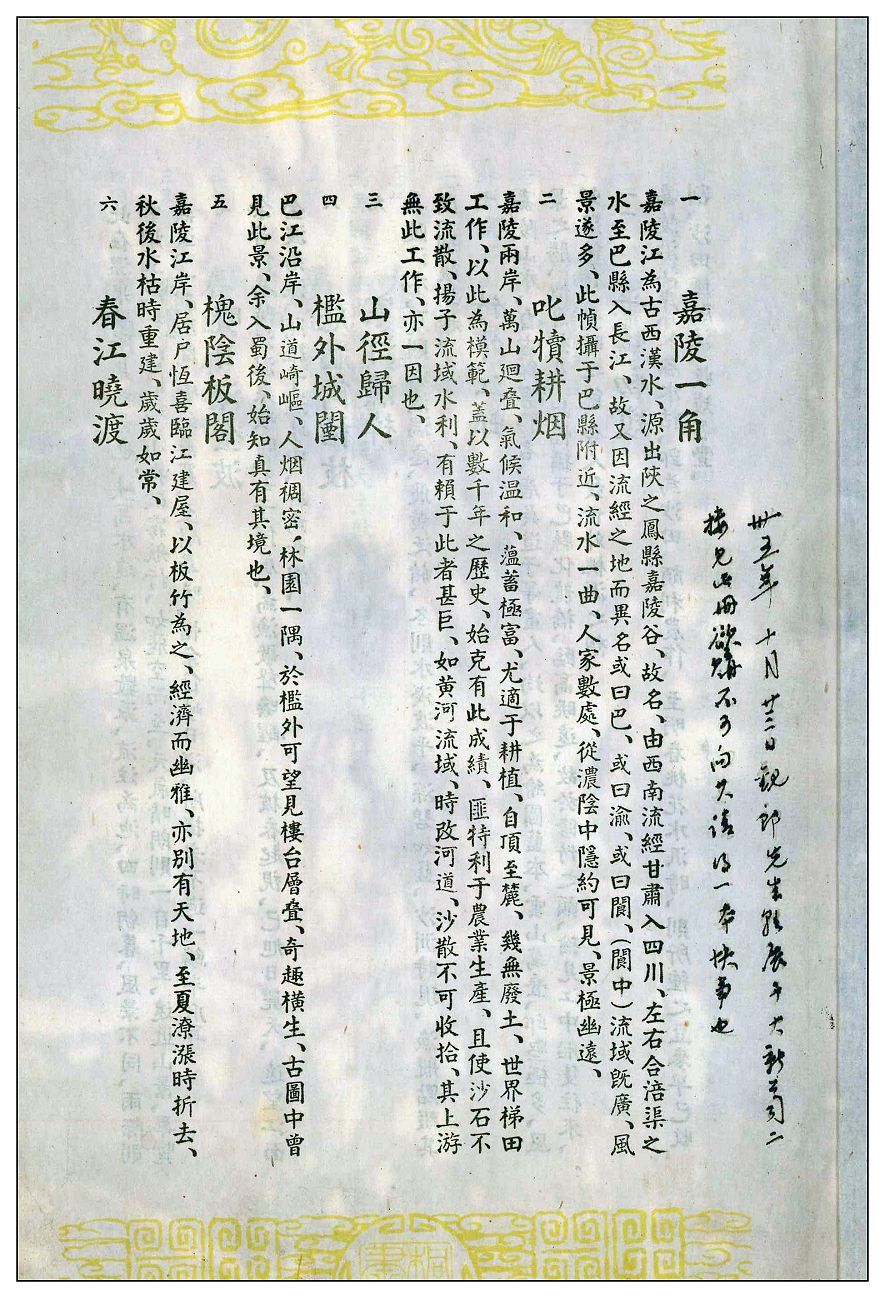 卅五年十月廿三日靚郎先生張展于大新公司二
樓見此冊欲購不可向其請得一本快事也
一　嘉陵一角
嘉陵江為古西漢水、源出陜之鳳縣嘉陵谷、故名、由西南流經甘肅入四川、左右合涪渠之
水至巴縣入長江、故又因流經之地而異名或曰巴、或曰渝、或曰閬、(閬中)流域既廣、風
景遂多、此幀攝于巴縣附近、流水一曲、人家數處、從濃陰中隱約可見、景極幽遠、
二　叱犢耕烟
嘉陵兩岸、萬山迴叠、氣候温和、薀蓄極富、尤適于耕植、自頂至麓、幾無廢土、世界梯田
工作、以此為模範、蓋以數千年之歷史、始克有此成績、匪特利于農業生產、且使沙石不
致流散、揚子流域水利、有賴于此者甚巨、如黄河流域、時改河道、沙散不可收拾、其上游
無此工作、亦一因也、
三　山徑歸人
四　檻外城闉
巴江沿岸、山道崎嶇、人烟稠密、林園一隅、於檻外可望見樓台層叠、奇趣横生、古圖中曾
見此景、余入蜀後、始知真有其境也、
五　槐陰板閣
嘉陵江岸、居户恆喜臨江建屋、以板竹為之、經濟而幽雅、亦別有天地、至夏潦漲時折去、
秋後水枯時重建、歲歲如常、
六　春江曉渡